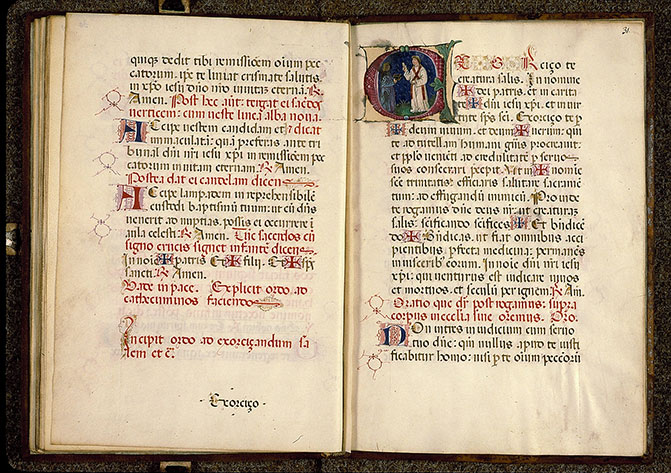 quiqz dedit tibi remissiōem oīum pec
catorum. ip̄e te liniat crismate salutis
in xp̄o iesu dn̄o nr̄o in vitaʒ eternā. R̄
Amen. Post hec aūt: tergat ei sacerdos
verticem: cum veste linea alba nova.
Accipe vestem candidam et: dicat
immaculatā: quā preferas ante tri
bunal dn̄i nr̄i iesu xp̄i in remissiōem pec
catorum in vitam eternam. R̄ Amen.
Postea dat ei candelam dicens
Accipe lampadem irreprehensibilē
custodi baptismū tuum: ut cū dn̄s
venerit ad nuptias. possis ei occurrere ī
aula celesti R̄ Amen. Tūc sacerdos cū
signo crucis signet infantē dicens
In noīe ✠ patris Et ✠ filii. Et ✠ sp̄s
sancti. R̄ Amen.
Vade in pace. Explicit ordo ad
cathecuminos faciendos
Incipit ordo ad exorciçandum sa
lem et c̄.
Exorciço
31
EXORciço te
creatura salis. In nomine
✠ dei patris. et in carita
te ✠ dn̄i iesu xp̄i. et in virtu
te sp̄s sc̄i. Exorciço te p
✠ deum vivum. et deum ✠ verum: qui
te ad tutelam humani gn̄is procreavit:
et pp̄lo venienti ad credulitatē p servos
suos consecrari precepit. Ut in ✠ nomie
sc̄e trinitatis: efficiaris salutare sacramē
tum: ad effugandū inimicū. Proinde
te rogamus dn̄e deus nr̄: ut creaturaʒ
salis: sc̄ificando sc̄ifices ✠ Et bn̄dicē
do ✠ Bn̄dicas. ut fiat omnibus acci
pientibus p̄fecta medicina: permanēs
in visceribꝰ eorum. In noīe dn̄i nr̄i iesu
xp̄i: qui venturus est iudicare vivos
et mortuos. et seculū per ignem. R̄ Am̄.
Oratio que dr̄ post rogamus: supra
corpus in ecclīa sine oremus. Oro.
Non intres in iudicium cum servo
tuo dn̄e: qui nullus apud te iusti
ficabitur homo: nisi p te oīum peccorū